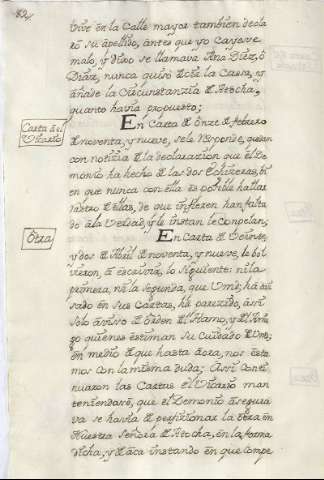 82
vive en la Calle mayor tambien decla
ró su apellido, antes que yo cayese
malo, y dixo se llamava Ana Diez, ó
Diaz, nunca quiso decir la Cassa, y
añade la circunstanzia de Atocha,
quanto havia propuesto;
Carta del Vicario
En Carta de Onze de febrero
de noventa, y nueve, se le Responde, quedan
con noticia de la declarazion que el De
monio ha hecho de las dos echizeras, bi
en que nunca con ella es posible hallar
rastro de ellas, de que infieren han falta
do a la verdad, y le instan le conpelan;
Otra
En Carta de Veinte,
y dos de Abril de noventa, y nueve, le bol
vieron, a escrivir, lo siguiente: ni la
primera, ni la segunda, que Vmd; ha avi
sado en sus Cartas, ha parezido, assi
solo aviso de orden del Hamo, y del Ami
go quienes estiman su cuidado de Vmd;
en medio de que hasta aora, nos esta
mos con la misma duda; Assi conti
nuaron las Cartas del Vicario man
teniendose, que el Demonio asegura
va se havia de perfizionar la obra en
Nuestra Señora de Atocha, en la forma
dicha, y de aca instando en que compe